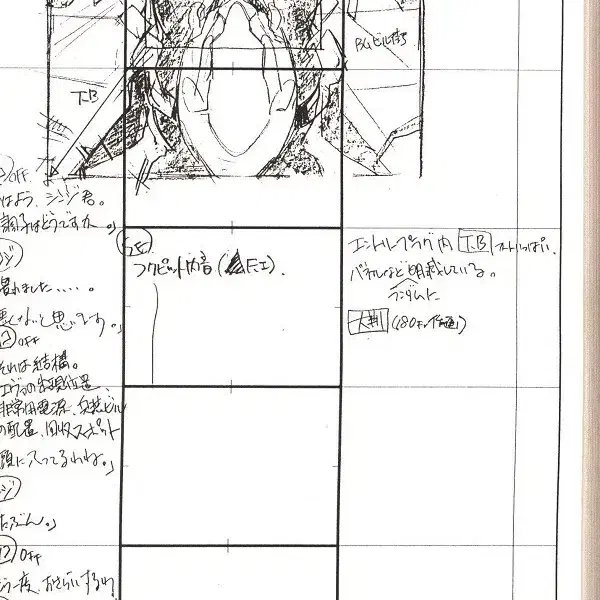 T.B
BGビル街
OFF
はよう、シンジ君。
調子はどうですか。」
慣れました……。
悪くないと思います。」
OFF
それは結構。
エヴァの出現位置、
非常用電源、兵装ビル
の配置、回収スポット
頭に入ってるわね。」
たぶん。」
OFF
う一度、おさらいするわ
SE
コクピット内音(F.I).
エントリープラグ内 T.B
パネルなど明滅している。
ランダムに
大判